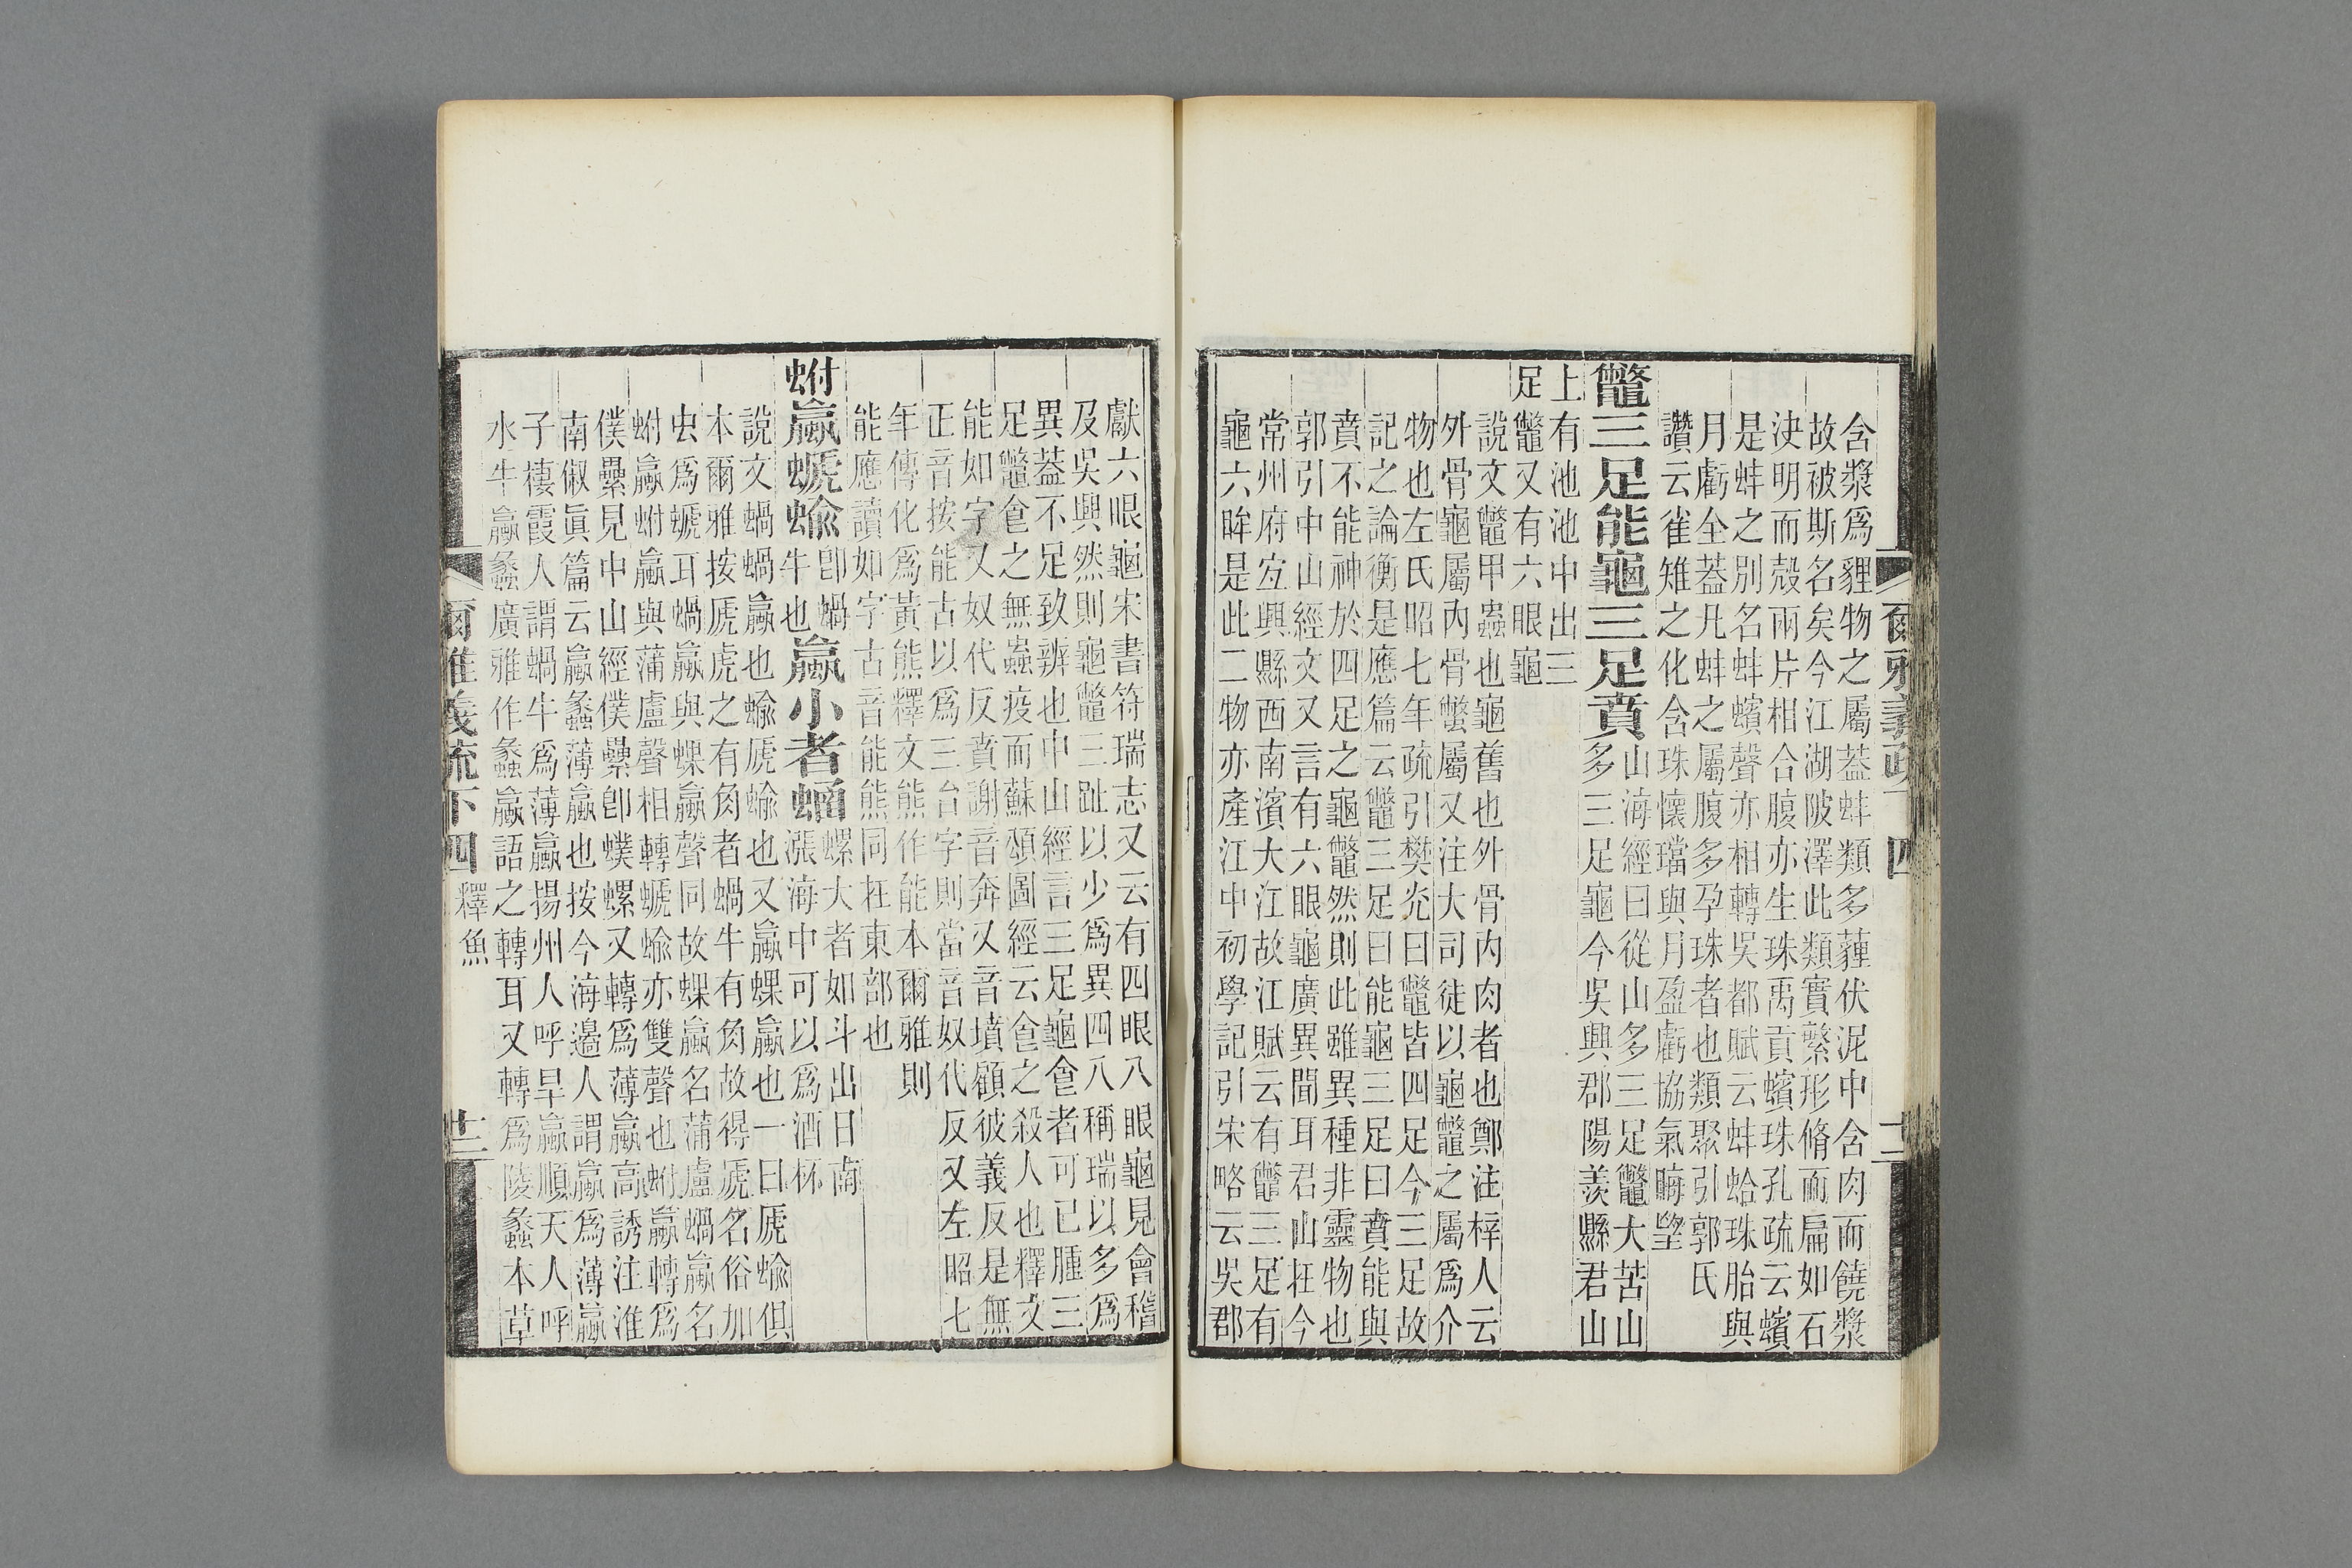 爾雅義疏下四
十二
含漿爲貍物之屬葢蚌類多薶伏泥中含肉而饒漿
故被斯名矣今江湖陂澤此類實繁形脩而扁如石
決明而殼兩片相合腹亦生珠禹貢蠙珠孔疏云蠙
是蚌之別名蚌蠙聲亦相轉吳都賦云蚌蛤珠胎與
月虧全葢凡蚌之屬腹多孕珠者也類聚引郭氏
讚云雀雉之化含珠懷璫與月盈虧協氣晦望
鼈三足能龜三足賁
山海經曰從山多三足鼈大苦山
多三足龜今吳興郡陽羨縣君山
上有池池中出三
足鼈又有六眼龜
說文鼈甲蟲也龜舊也外骨內肉者也鄭注梓人云
外骨龜屬內骨鼈屬又注大司徒以龜鼈之屬爲介
物也左氏昭七年疏引樊光曰鼈皆四足今三足故
記之論衡是應篇云鼈三足曰能龜三足曰賁能與
賁不能神於四足之龜鼈然則此雖異種非靈物也
郭引中山經文又言有六眼龜廣異聞耳君山在今
常州府宜興縣西南濱大江故江賦云有鼈三足有
龜六眸是此二物亦產江中初學記引宋略云吳郡
獻六眼龜宋書符瑞志又云有四眼八眼龜見會稽
及吳興然則龜鼈三趾以少爲異四八稱瑞以多爲
異葢不足致辨也中山經言三足龜食者可已腫三
足鼈食之無蠱疫而蘇頌圖經云食之殺人也釋文
能如字又奴代反賁謝音奔又音墳顧彼義反是無
正音按能古以爲三台字則當音奴代反又左昭七
年傳化爲黃熊釋文熊作能本爾雅則
能應讀如字古音能熊同在東部也
蚹蠃螔蝓
卽蝸
牛也
蠃小者蜬
螺大者如斗出日南
漲海中可以爲酒杯
說文蝸蝸蠃也蝓虒蝓也又蠃蜾蠃也一曰虒蝓俱
本爾雅按虒虎之有角者蝸牛有角故得虒名俗加
虫爲螔耳蝸蠃與蜾蠃聲同故蜾蠃名蒲盧蝸蠃名
蚹蠃蚹蠃與蒲盧聲相轉螔蝓亦雙聲也蚹蠃轉爲
僕纍見中山經僕纍卽蟔螺又轉爲薄蠃高誘注淮
南俶眞篇云蠃蠡薄蠃也按今海邊人謂蠃爲薄蠃
子棲霞人謂蝸牛爲薄蠃揚州人呼旱蠃順天人呼
水牛蠃蠡廣雅作蠡蠃語之轉耳又轉爲陵蠡本草
爾雅義疏下四
釋魚
十二